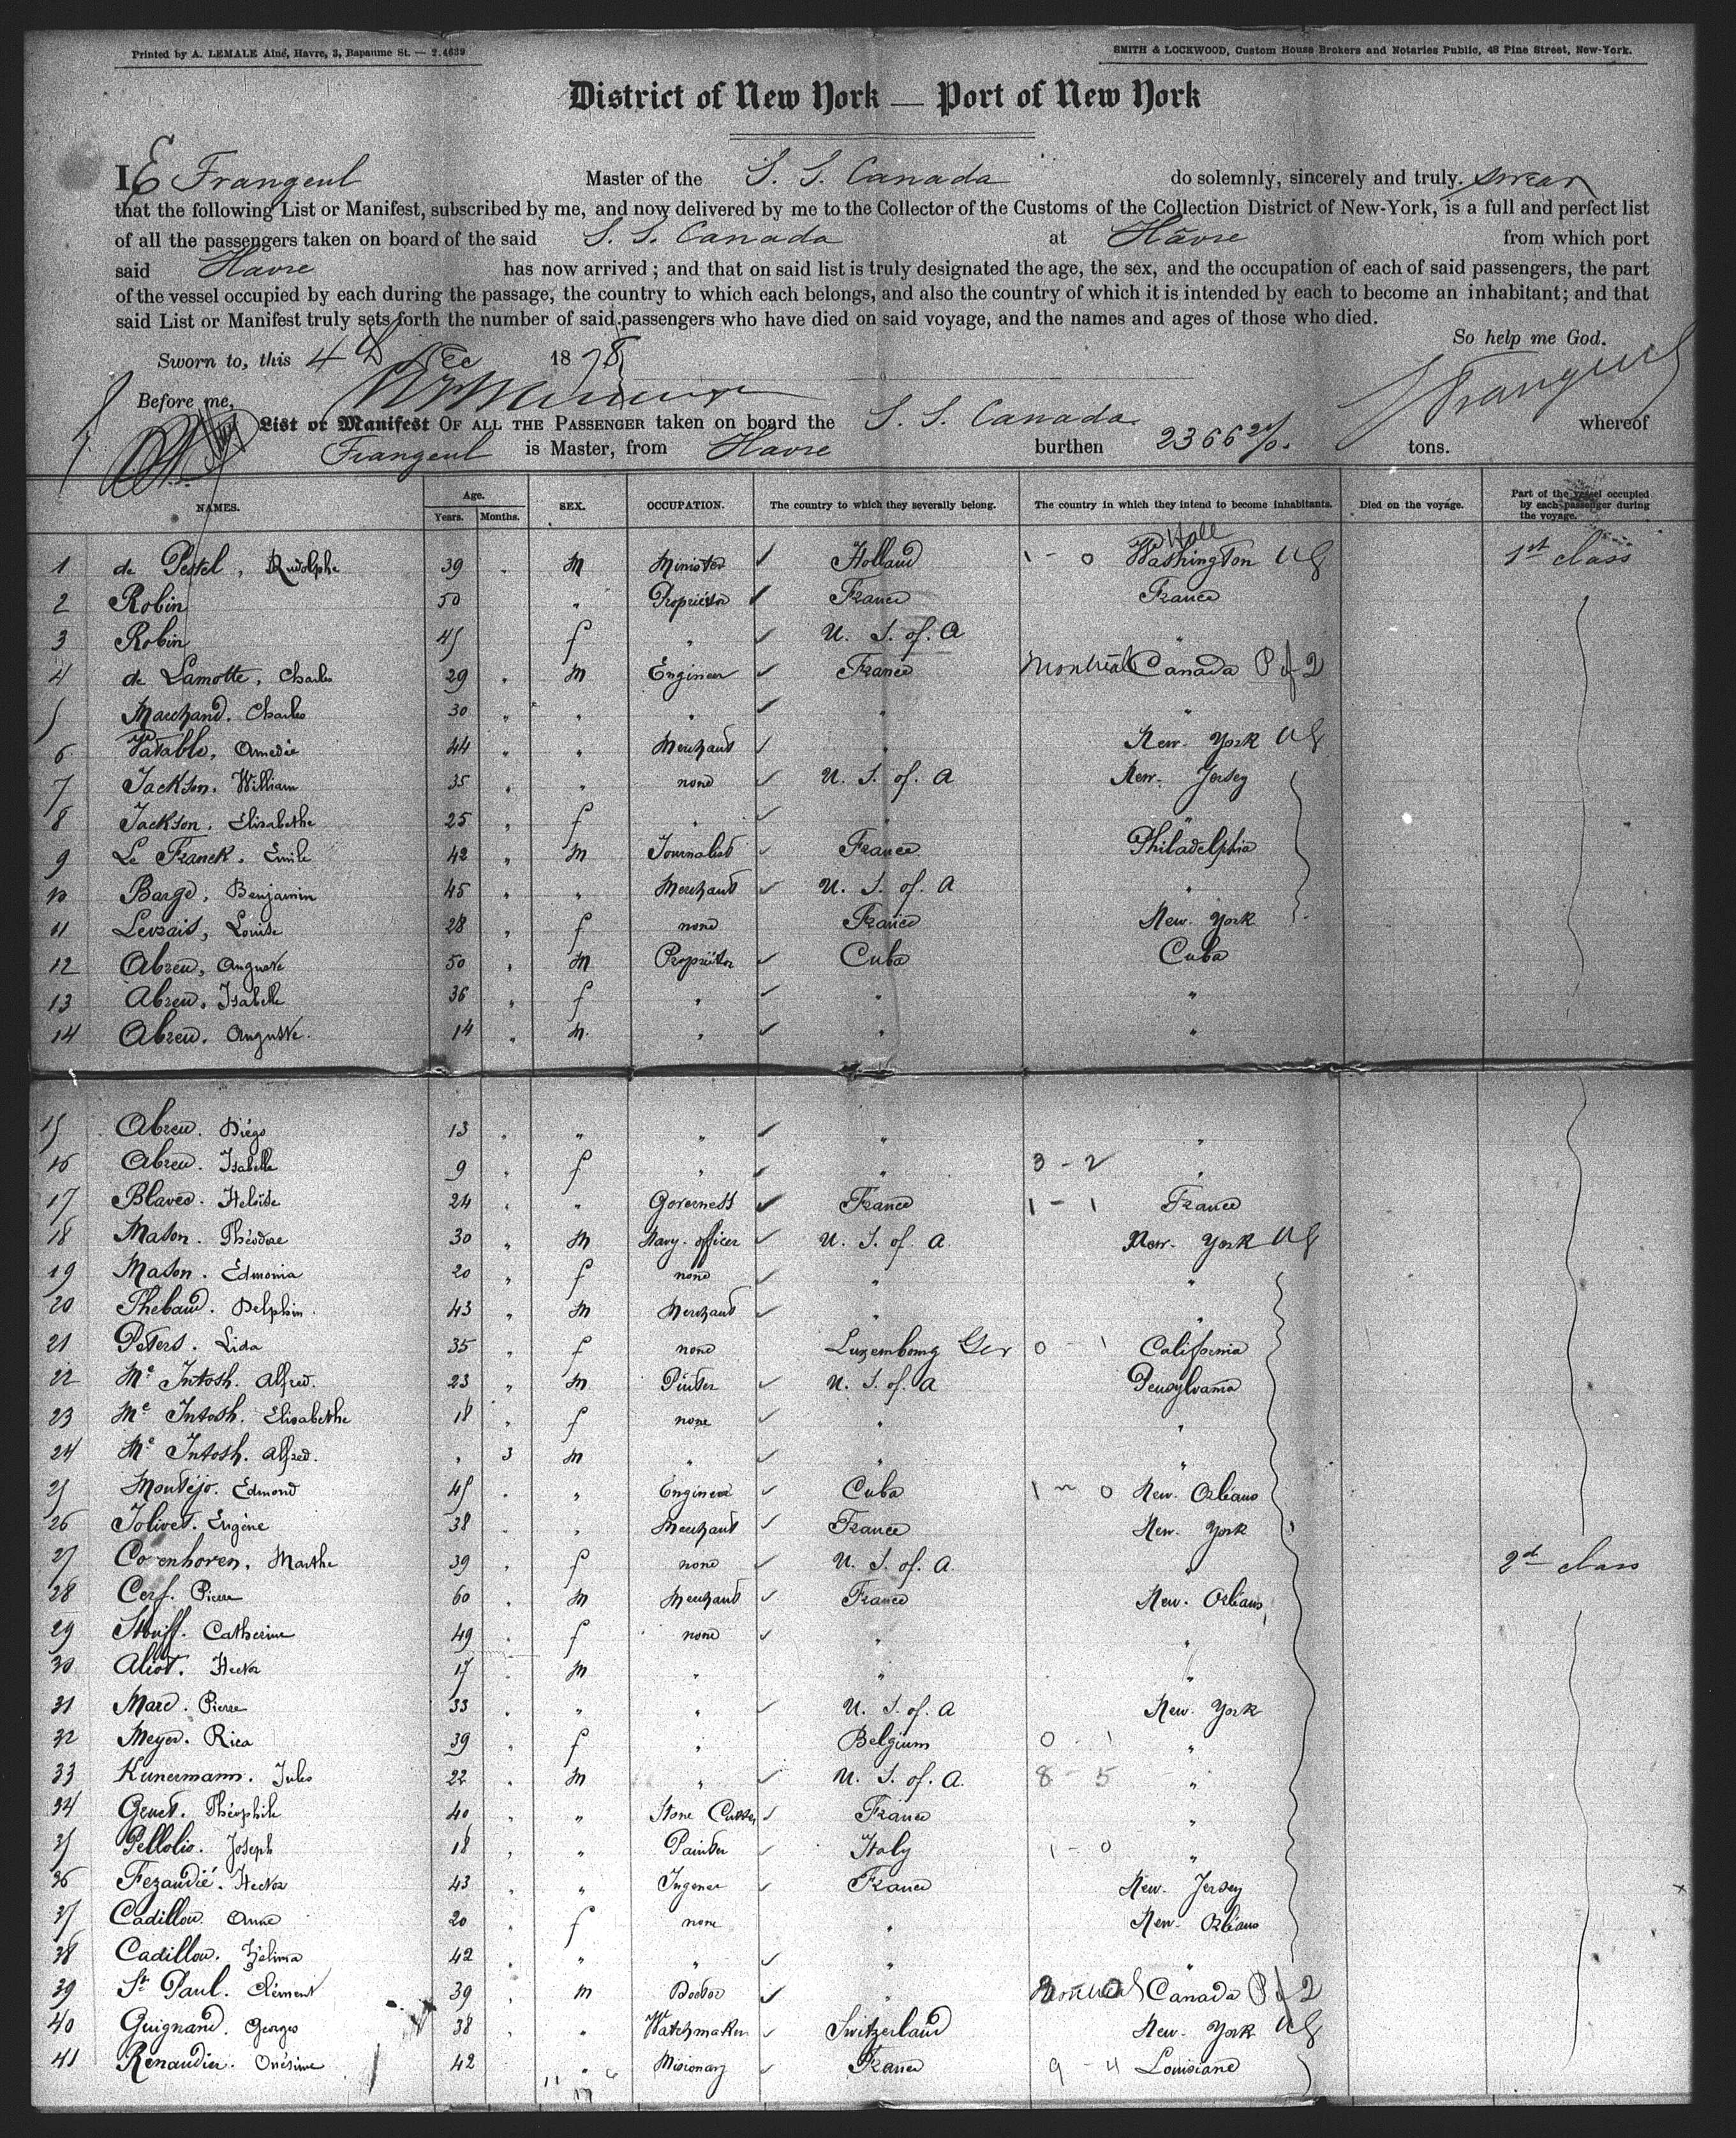 Printed by A. LEMALE Aîné, Havre, 3, Bapaume St. — 2.4639
SMITH & LOCKWOOD, Custom House Brokers and Notaries Public, 48 Pine Street, New-York.
District of New York — Port of New York
I E Frangeul Master of the S. S. Canada do solemnly, sincerely and truly. swear
that the following List or Manifest, subscribed by me, and now delivered by me to the Collector of the Customs of the Collection District of New-York, is a full and perfect list
of all the passengers taken on board of the said S. S. Canada at Hâvre from which port
said Havre has now arrived ; and that on said list is truly designated the age, the sex, and the occupation of each of said passengers, the part
of the vessel occupied by each during the passage, the country to which each belongs, and also the country of which it is intended by each to become an inhabitant ; and that
said List or Manifest truly sets forth the number of said passengers who have died on said voyage, and the names and ages of those who died.
So help me God.
Sworn to, this 4 Dec 1878
Frangeul
Before me,
List or Manifest OF ALL THE PASSENGER taken on board the S. S. Canada whereof
Frangeul is Master, from Havre burthen 2366 tons.
NAMES. Age. Years. Months. SEX. OCCUPATION. The country to which they severally belong. The country in which they intend to become inhabitants. Died on the voyage. Part of the vessel occupied by each passenger during the voyage.
1 de Pestel, Rudolphe 39 " M Minister Holland 1 - 0 Washington US 1st class
2 Robin 50 " Propriétor France France
3 Robin 45 f " U. S. of. A "
4 de Lamotte, Charles 29 " M Engineer France Montreal Canada P of 2
5 Marchand. Charles 30 " " " " "
6 Patable, Amedée 44 " " Merchant " New. York US
7 Jackson. William 35 " " none U. S. of. A New. Jersey
8 Jackson. Elisabethe 25 " f " " "
9 Le Franck. Emile 42 " M Journalist France Philadelphia
10 Barge, Benjamin 45 " " Merchant U. S. of. A "
11 Levrais, Louise 28 " f none France New. York
12 Abreu, Auguste 50 " M Propriétor Cuba Cuba
13 Abreu. Isabelle 36 " f " " "
14 Abreu. Auguste. 14 " M. " " "
15 Abreu. Diégo 13 " " " " "
16 Abreu. Isabelle 9 " f " " 3 - 2 "
17 Blavec. Heloïse 24 " " Governess France 1 - 1 France
18 Mason. Théodore 30 " M Navy. officer U. S. of. A New. York US
19 Mason. Edmonia 20 " f none " "
20 Thebaud. Delphin. 43 " M Merchant " "
21 Peters. Lida 35 " f none Luxembourg Ger 0 - 1 California
22 Mc Intosh. Alfred. 23 " M U. S. of. A Pensylvania
23 Mc Intosh. Elisabethe 18 " f none " "
24 Mc Intosh. Alfred. " 3 M " " "
25 Montéjo. Edmond 45 " " Engineer Cuba 1 - 0 New. Orléans
26 Jolivet. Eugène 38 " " Merchant France New. York
27 Marthe 39 " f none U. S. of. A. " 2d class
28 Cerf. Pierre 60 " M Merchant France New. Orléans
29 Catherine 49 " f none " "
30 Aliot. Hector 17 " M " " "
31 Marc. Pierre 33 " " " U. S. of. A New. York
32 Meyer. Rica 39 " f " Belgium 0 - 1 "
33 Kunermann. Jules 22 " M " U. S. of. A. 8 - 5 "
34 Genet. Théophile 40 " " Stone Cutter France "
35 Pellolio. Joseph 18 " " Painter Italy 1 - 0 "
36 Fezandié. Hector 43 " " Ingener France New. Jersey
37 Cadillon. Anne 20 " f none " New. Orléans
38 Cadillon. Zelima 42 " " " " "
39 St Paul. Clément 39 " M Doctor " Montreal Canada P of 2
40 Guignand. Georges 38 " " Watchmaker Switzerland New. York US
41 Renaudier. Onésime 42 " Misionary France 9 - 4 Louisiane